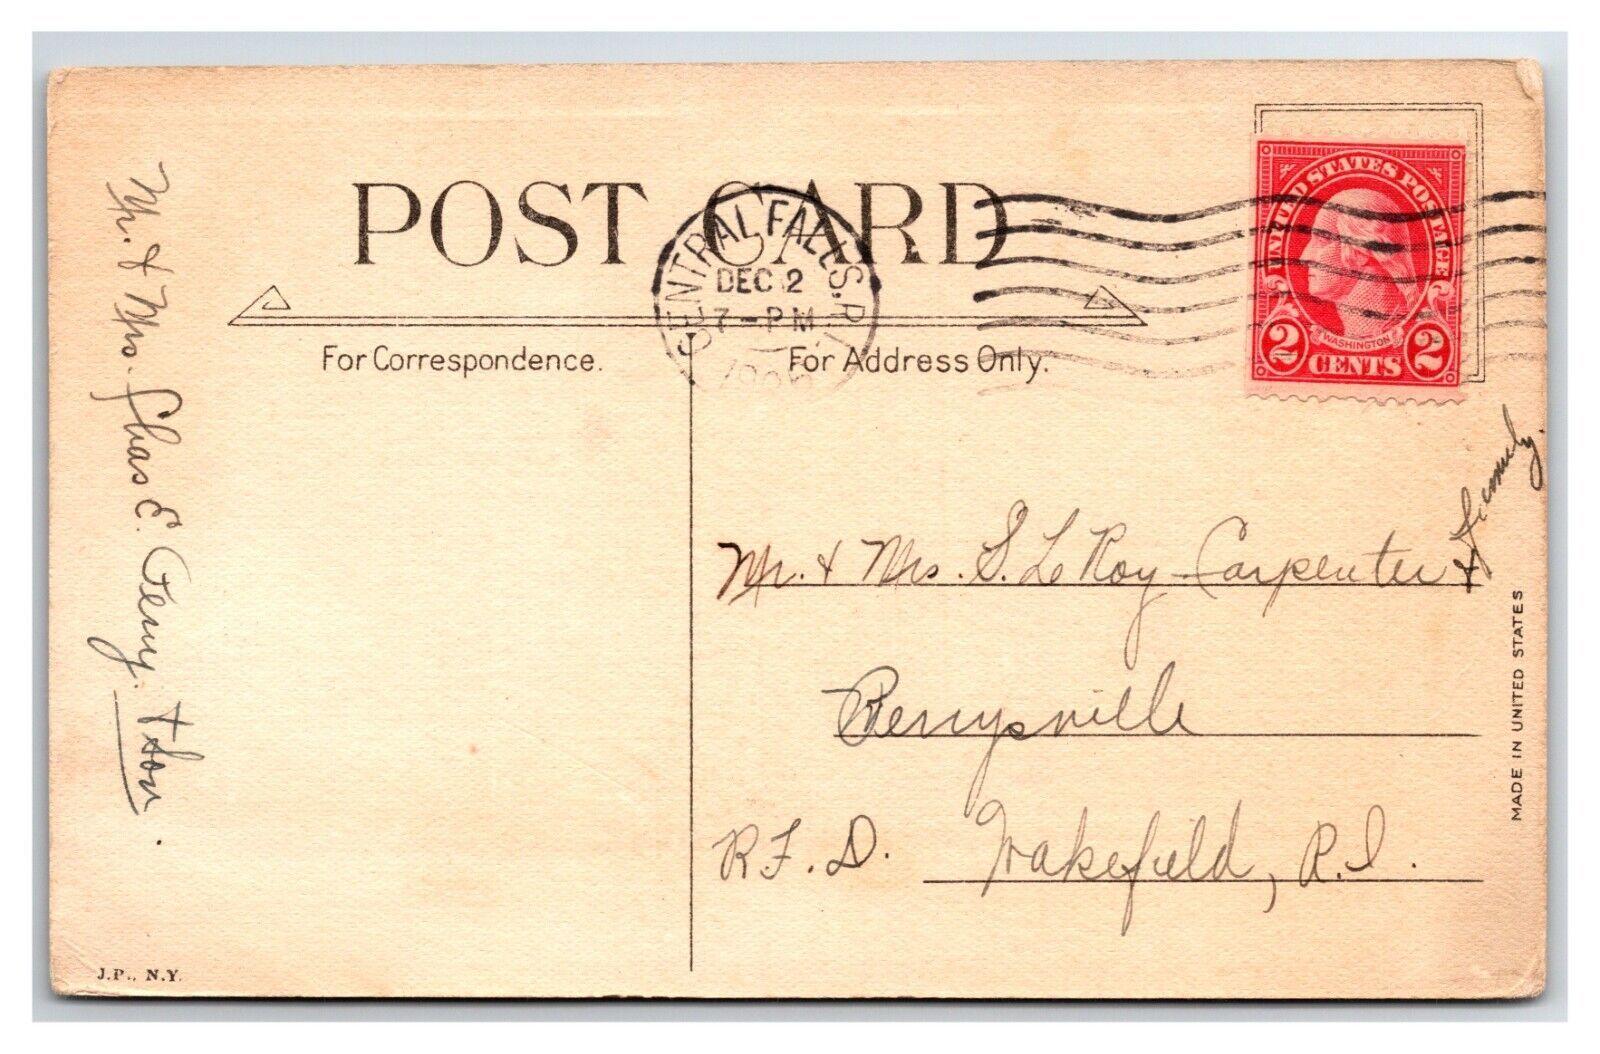 POST CARD
CENTRAL FALLS. R.I.
DEC 2
7-PM
For Correspondence.
For Address Only.
UNITED STATES POSTAGE
WASHINGTON
2 CENTS 2
Mr. & Mrs. Chas E. Perry. & Son.
Mr. & Mrs. S. LeRoy Carpenter & Family.
Perrysville
R.F.D. Wakefield, R.I.
MADE IN UNITED STATES
J.P., N.Y.